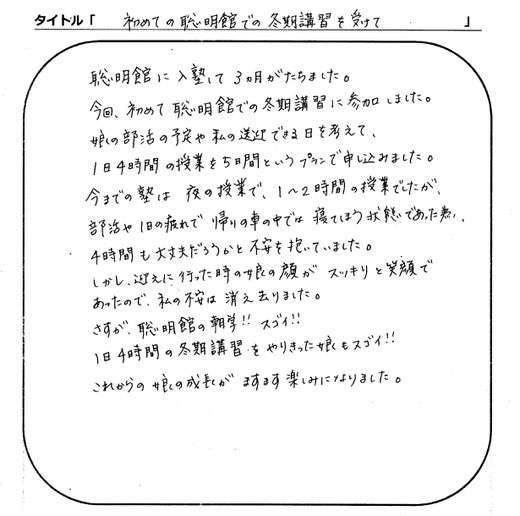 タイトル「 初めての聡明館での冬期講習を受けて 」
聡明館に入塾して3ヵ月がたちました。
今回、初めて聡明館での冬期講習に参加しました。
娘の部活の予定や私の送迎できる日を考えて、
1日4時間の授業を5日間というプランで申し込みました。
今までの塾は夜の授業で、1～2時間の授業でしたが、
部活や1日の疲れで帰りの車の中では寝てしまう状態であった為、
4時間も大丈夫だろうかと不安を抱いていました。
しかし、迎えに行った時の娘の顔がスッキリと笑顔で
あったので、私の不安は消え去りました。
さすが、聡明館の朝学!!スゴイ!!
1日4時間の冬期講習をやりきった娘もスゴイ!!
これからの娘の成長がますます楽しみになりました。